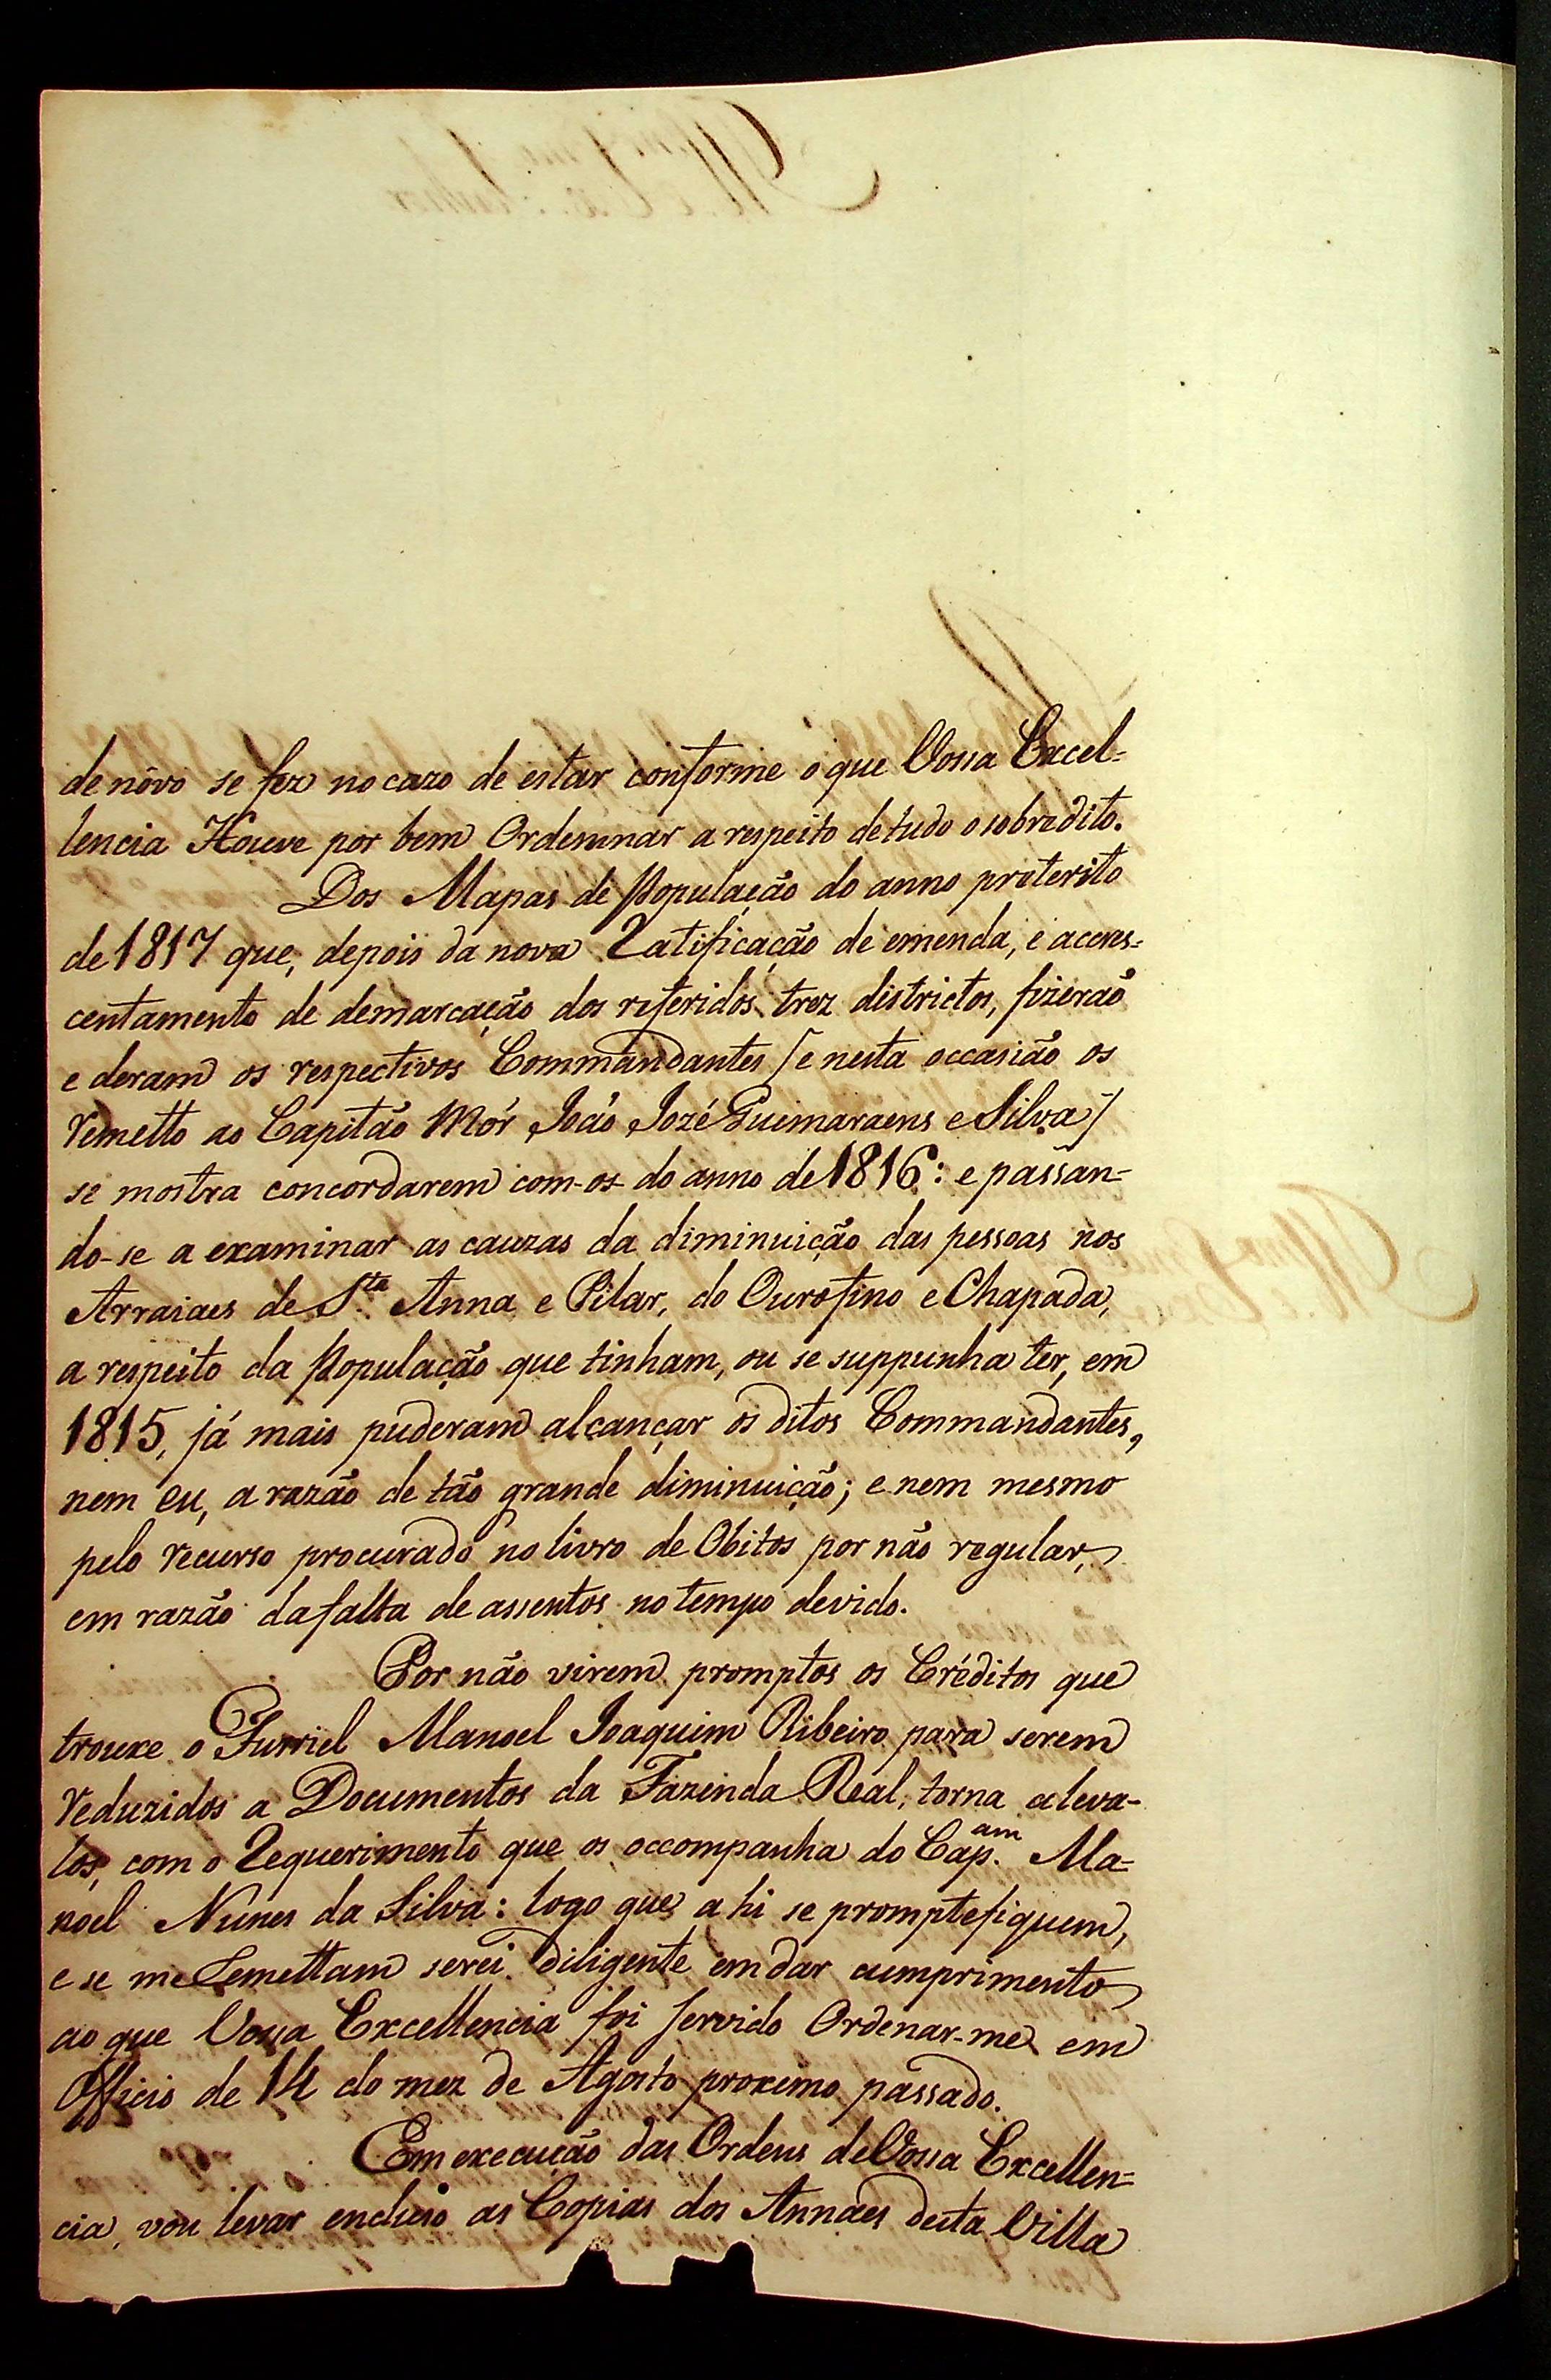 de nôvo se fez no cazo de estar conforme o que Vossa Excel-
lencia Houve por bem Ordemnar a respeito de tudo o sobredito.
Dos Mapas de População do anno preterito
de 1817 que, depois da nova Ratificação de emenda, e acres-
centamento de demarcação dos referidos trez districtos, fizerão
e deram os respectivos Commandantes [e nesta occasião os
remetto ao Capitão Mór João Jozé Guimaraens e Silva]
se mostra concordarem com-os do anno de 1816: e passan-
do-se a examinar as cauzas da diminuição das pessoas nos
Arraiaes de S.ta Anna e Pilar, do Ourofino e Chapada,
a respeito da População que tinham, ou se suppunha ter, em
1815, já mais puderam alcançar os ditos Commandantes,
nem eu, a razão de tão grande diminuição; e nem mesmo
pelo recurso procurado no livro de Obitos por não regular,
em razão da falta de assentos no tempo devido.
Por não virem promptos os Créditos que
trouxe o Furriel Manoel Joaquim Ribeiro para serem
reduzidos a Documentos da Fazenda Real, torna a leva-
los, com o Requerimento que os accompanha do Cap.am Ma-
noel Nunes da Silva: logo que a hi se promptefiquem,
e se me Remettam serei diligente em dar cumprimento
ao que Vossa Excellencia foi servido Ordenar-me em
Officio de 14 do mez de Agosto proximo passado.
Em execução das Ordens de Vossa Excellen-
cia, vou levar encluso as Copias dos Annaes desta Villa